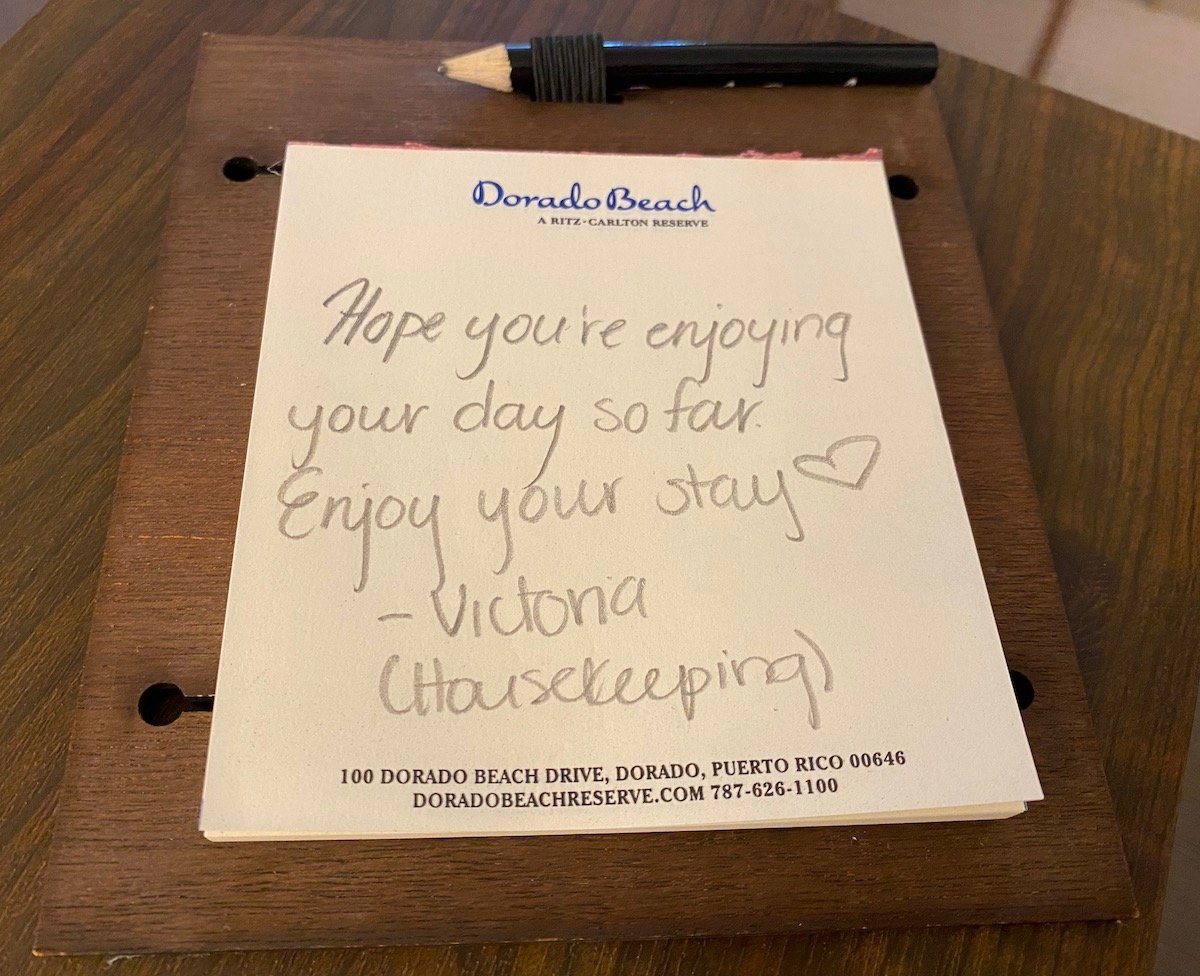 Dorado Beach
A RITZ-CARLTON RESERVE
Hope you're enjoying
your day so far.
Enjoy your stay♡
- Victoria
(Housekeeping)
100 DORADO BEACH DRIVE, DORADO, PUERTO RICO 00646
DORADOBEACHRESERVE.COM 787-626-1100